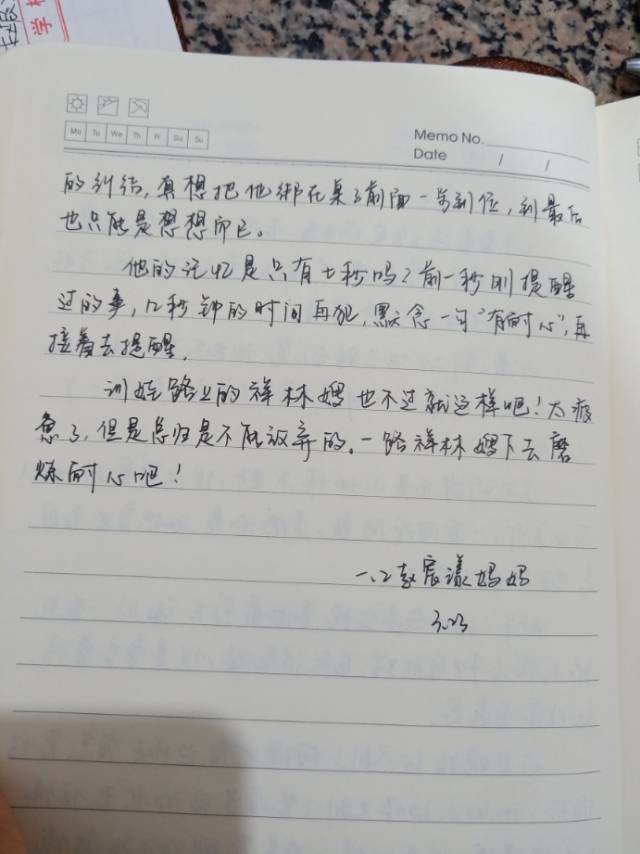 学校
Mo Tu We Th Fr Sa Su
Memo No.
Date / /
的纠结,真想把他绑在桌子前面一步到位,到最后
也只能是想想而已。
他的记忆是只有七秒吗?前一秒刚提醒
过的事,几秒钟的时间再犯,默念一句“有耐心”,再
接着去提醒。
训娃路上的祥林嫂也不过就这样吧!太疲
惫了,但是总归是不能放弃的。一路祥林嫂下去磨
炼耐心吧!
宸漾妈妈
3.23